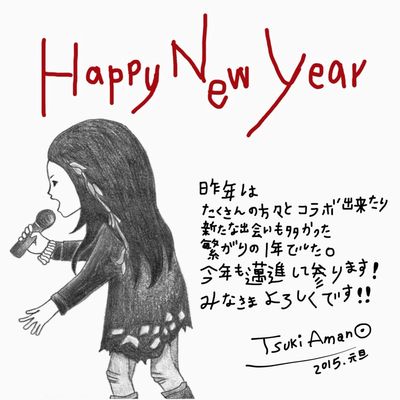 Happy New Year
昨年は
たくさんの方々とコラボ出来たり
新たな出会いも多かった
繋がりの1年でした。
今年も邁進して参ります!
みなさまよろしくです!!
Tsuki Amano
2015.元旦